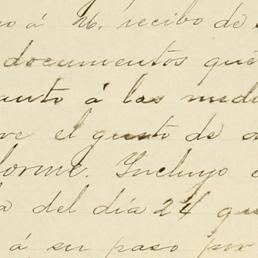 o á V. recibo de
documentos que
anto á las medi
ve el gusto de a
forme. Incluyo
a del día 24 qu
á su paso por